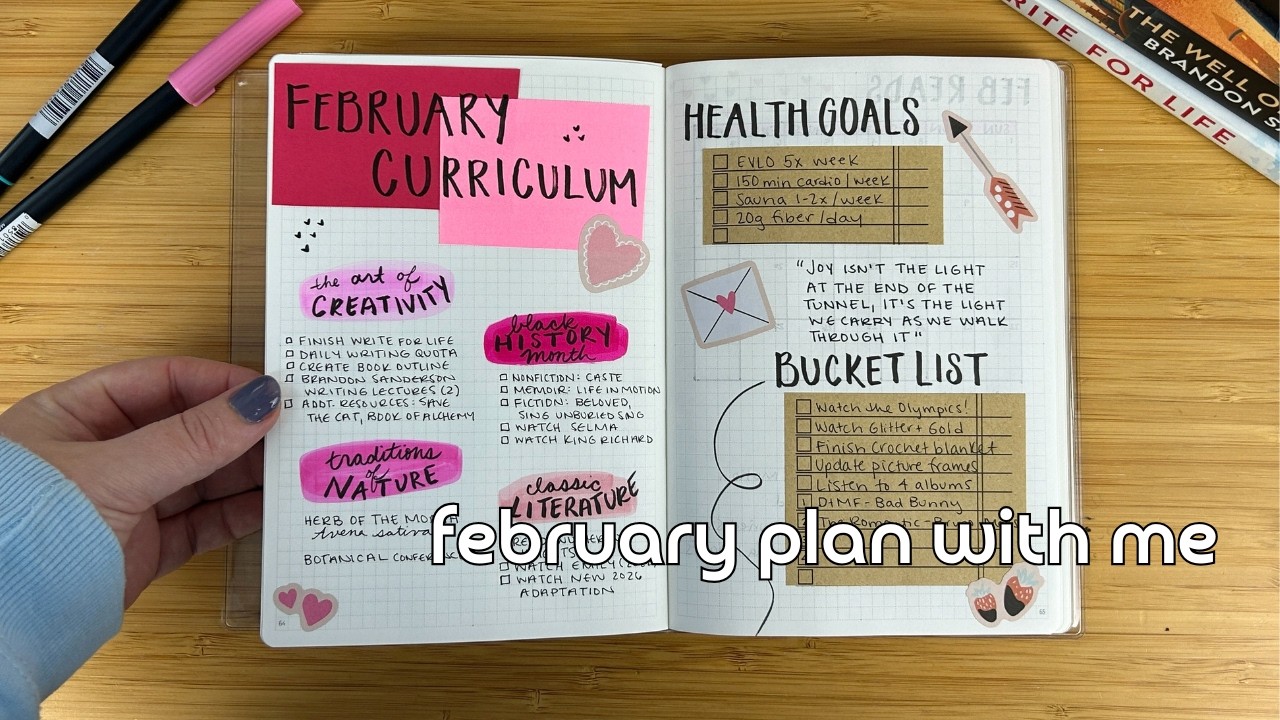 FEBRUARY
CURRICULUM
the art of
CREATIVITY
FINISH WRITE FOR LIFE
DAILY WRITING QUOTA
CREATE BOOK OUTLINE
BRANDON SANDERSON
WRITING LECTURES (2)
ADDT. RESOURCES: SAVE
THE CAT, BOOK OF ALCHEMY
traditions
of
NATURE
HERB OF THE MONTH
Avena sativa
BOTANICAL
black
HISTORY
month
NONFICTION: CASTE
MEMOIR: LIFE IN MOTION
FICTION: BELOVED,
SING UNBURIED SING
WATCH SELMA
WATCH KING RICHARD
classic
LITERATURE
WATCH
WATCH NEW 2026
ADAPTATION
64
HEALTH GOALS
EVLO 5x week
150 min cardio/week
Sauna 1-2x/week
20g fiber/day
"JOY ISN'T THE LIGHT
AT THE END OF THE
TUNNEL, IT'S THE LIGHT
WE CARRY AS WE WALK
THROUGH IT"
BUCKET LIST
Watch the Olympics!
Watch Glitter + Gold
Finish Crochet blanket
Update picture frames
Listen to 4 albums
1 DtMF - Bad Bunny
The
65
february plan with me
FEB READS
SUN
THE WELL O
BRANDON S
RITE FOR LIFE